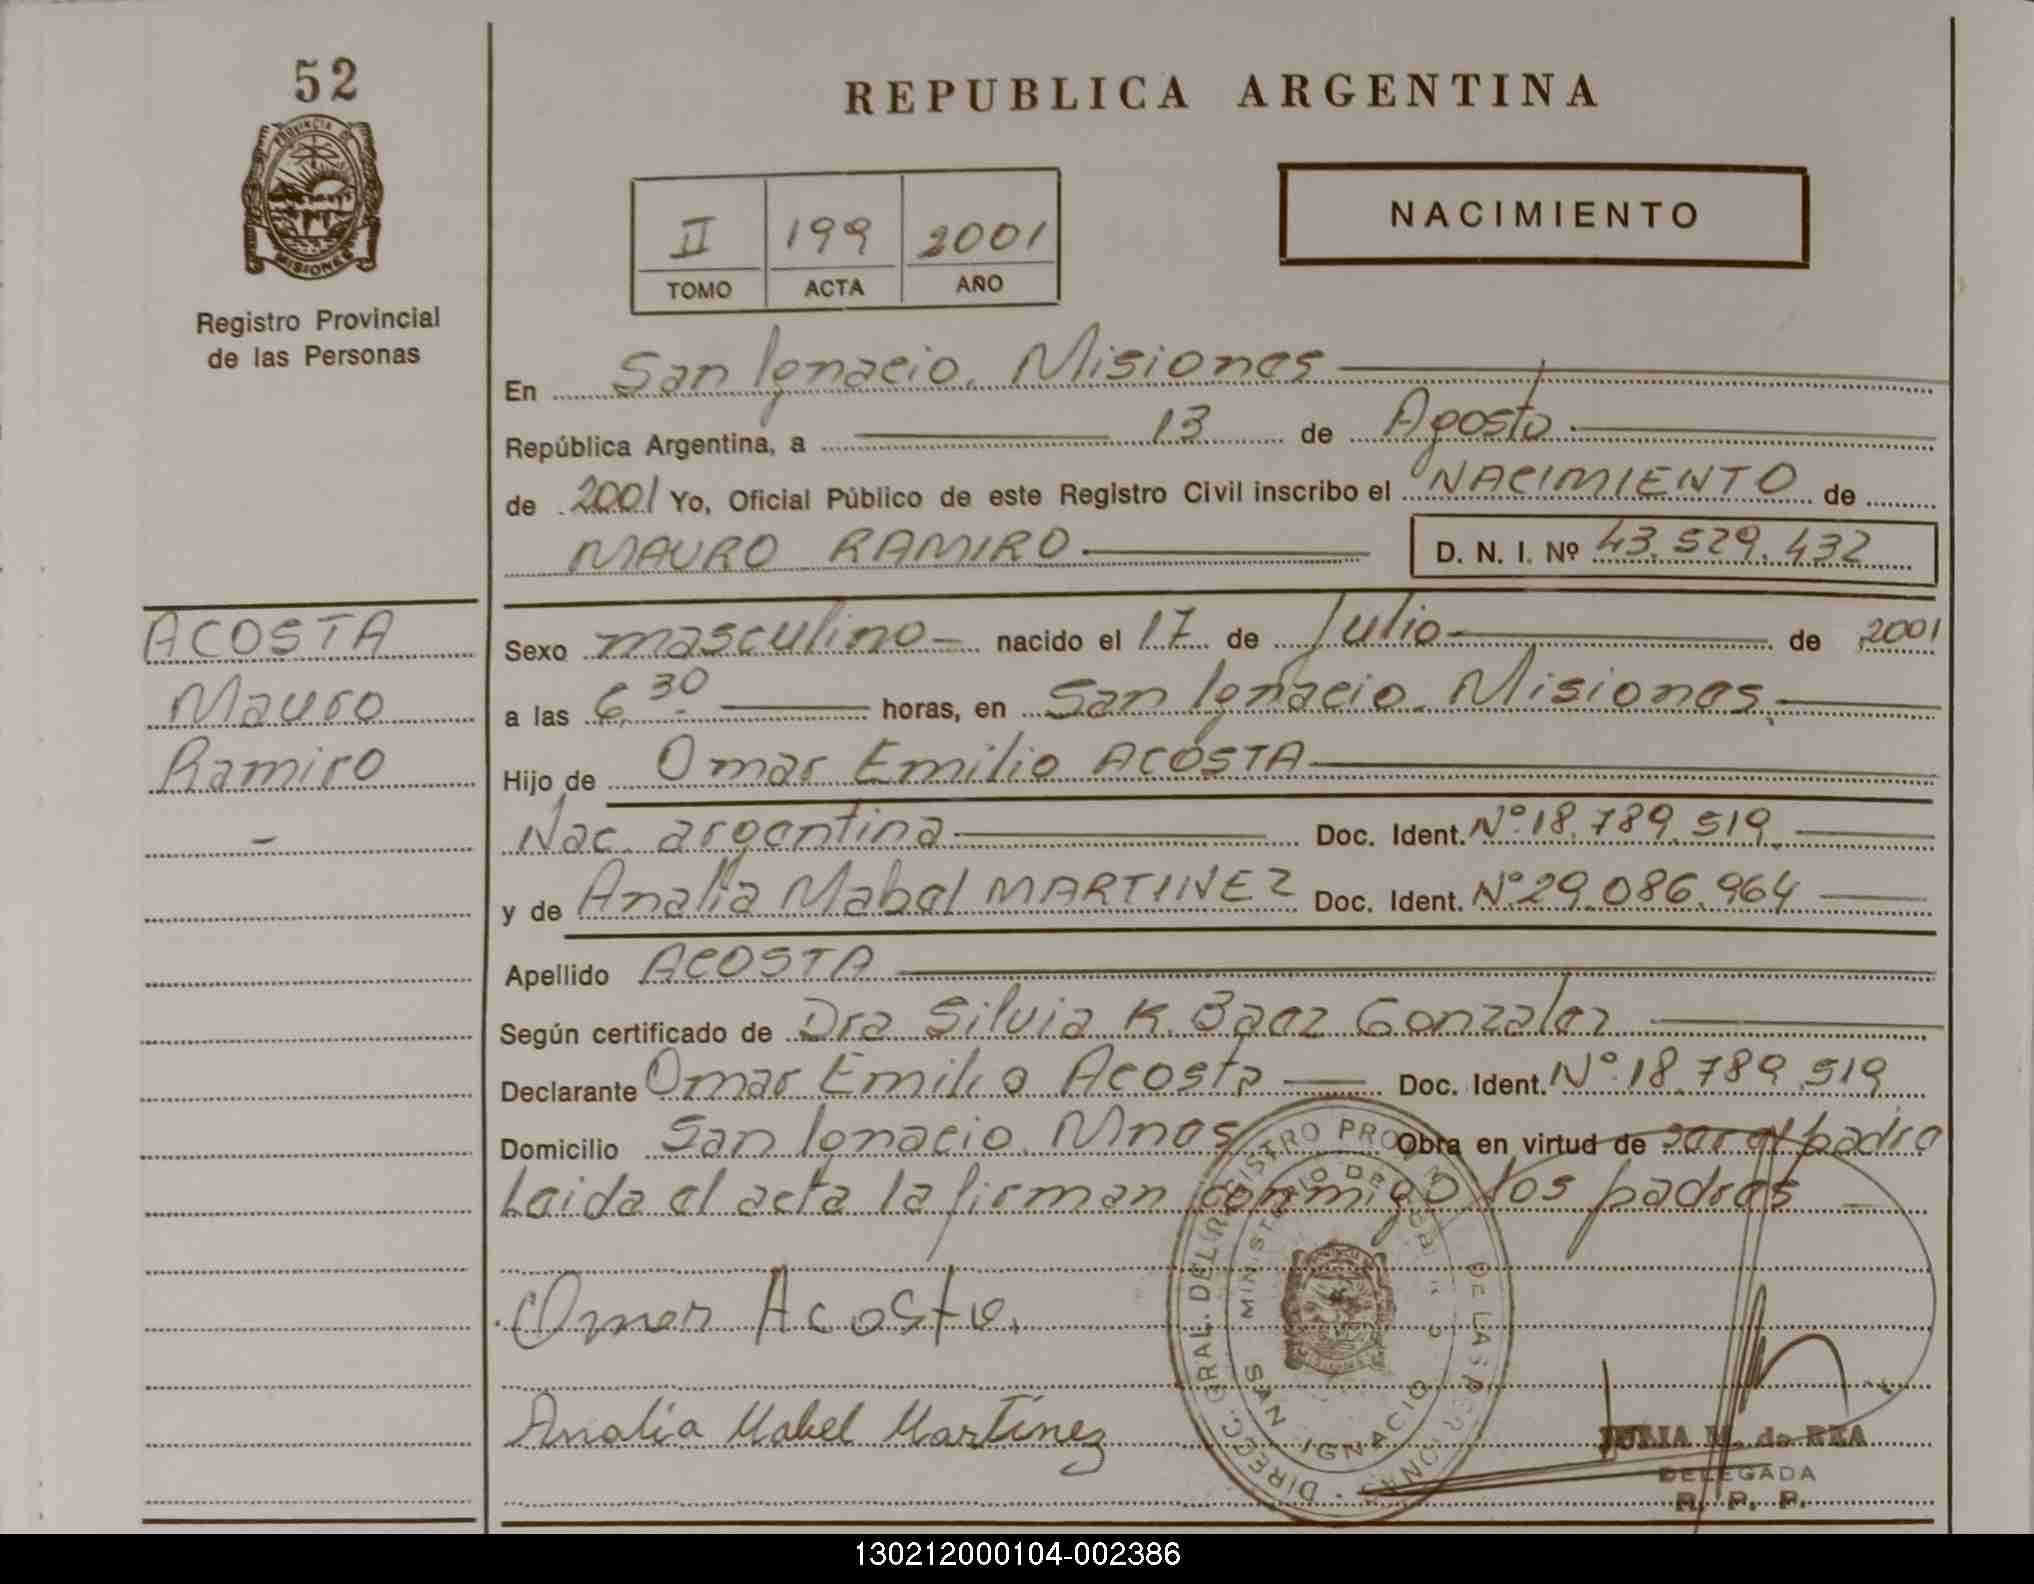 52
PROVINCIA DE
MISIONES
Registro Provincial
de las Personas
REPUBLICA ARGENTINA
II 199 2001
TOMO ACTA AÑO
NACIMIENTO
En San Ignacio. Misiones
República Argentina, a 13 de Agosto
de 2001 Yo, Oficial Público de este Registro Civil inscribo el NACIMIENTO de
MAURO RAMIRO D. N. I. Nº 43.529.432
ACOSTA
Mauro
Ramiro
-
Sexo masculino nacido el 17 de Julio de 2001
a las 6,30 horas, en San Ignacio. Misiones
Hijo de Omar Emilio ACOSTA
Nac. argentina Doc. Ident. Nº 18.789.519
y de Analia Mabel MARTINEZ Doc. Ident. Nº 29.086.964
Apellido ACOSTA
Según certificado de Dra Silvia K. Baez Gonzalez
Declarante Omar Emilio Acosta Doc. Ident. Nº 18.789.519
Domicilio San Ignacio. Mnes Obra en virtud de ser el padre
Leida el acta la firman conmigo los padres
Omar Acosta.
Analía Mabel Martínez
DIRECC. GRAL. DEL REGISTRO PROV. DE LAS PERSONAS
MINISTERIO DE GOBIERNO
SAN IGNACIO
JULIA M. de REA
DELEGADA
R. P. P.
130212000104-002386